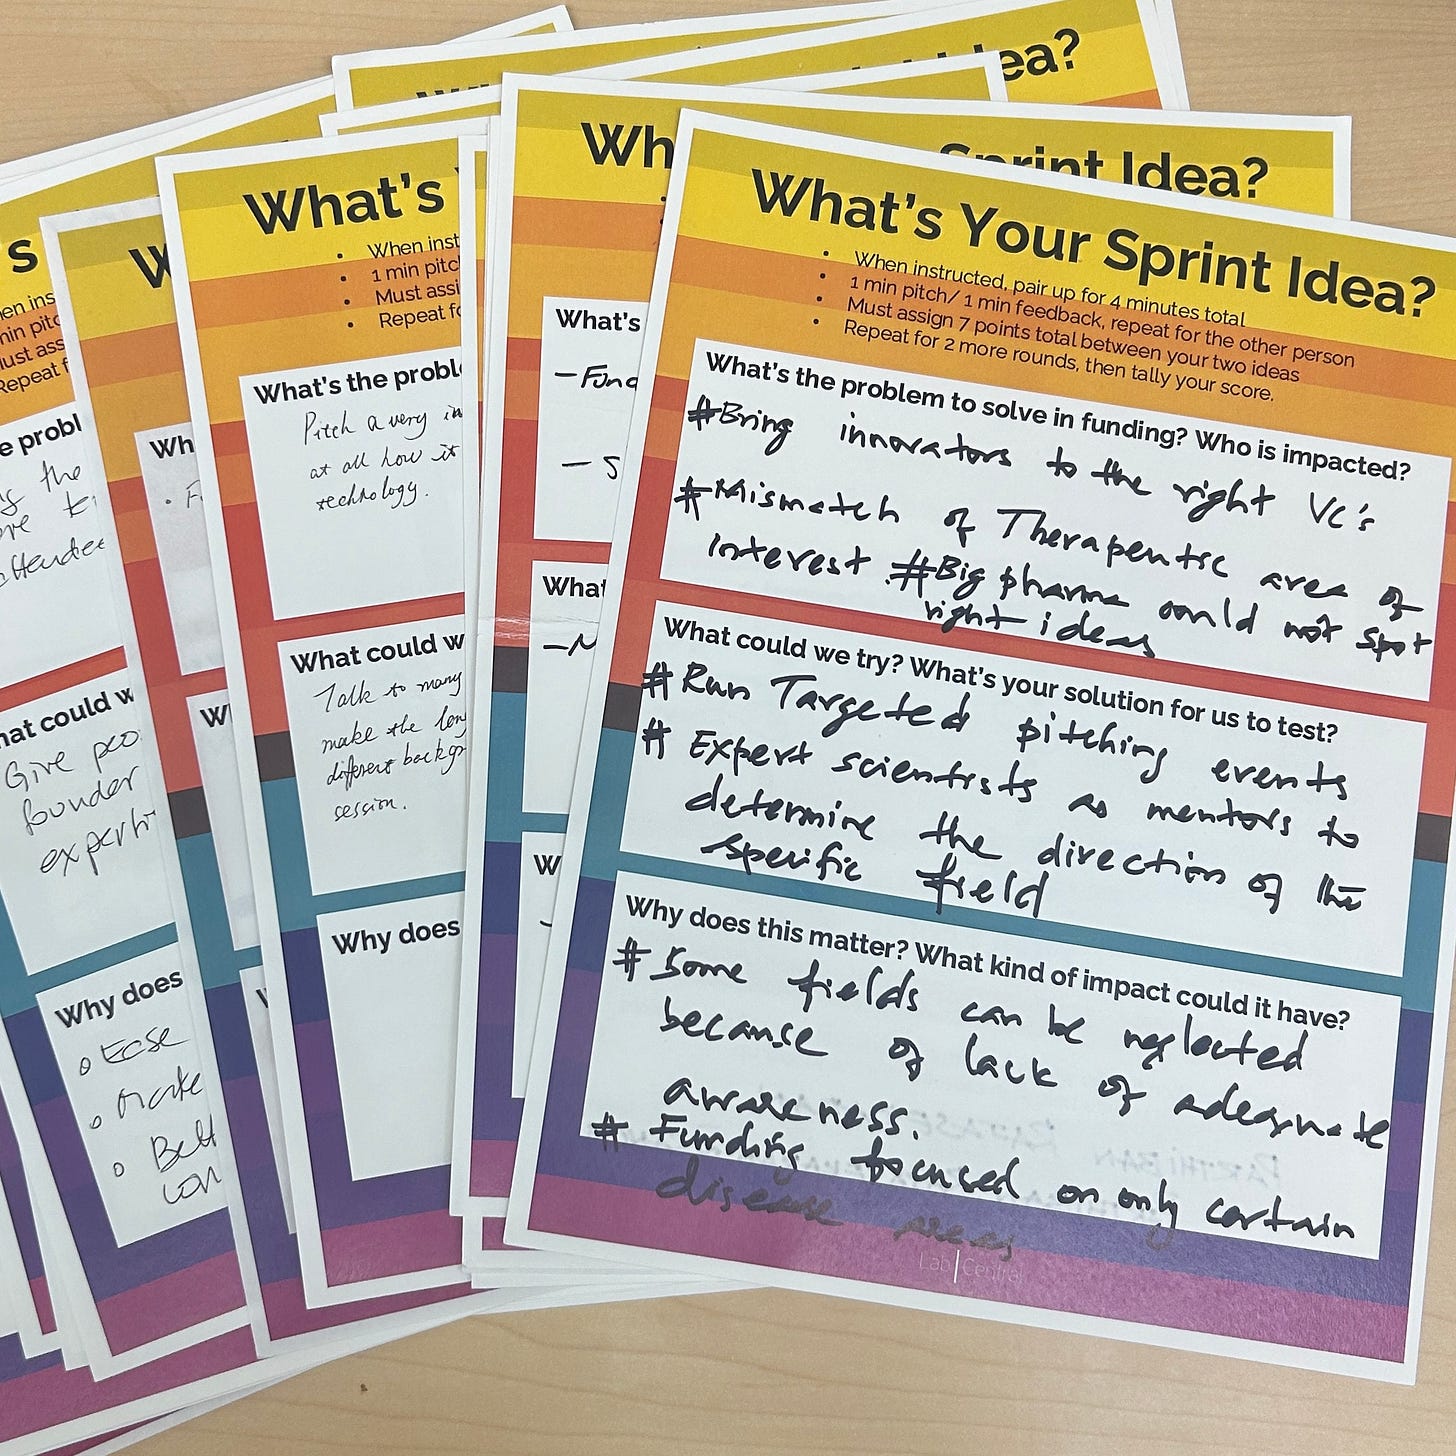 What's Your Sprint Idea?
• When instructed, pair up for 4 minutes total
• 1 min pitch/ 1 min feedback, repeat for the other person
• Must assign 7 points total between your two ideas
• Repeat for 2 more rounds, then tally your score.
What's the problem to solve in funding? Who is impacted?
#Bring innovators to the right VC's
#Mismatch of Therapeutic area of
interest. #Big pharma could not spot
right ideas
What could we try? What's your solution for us to test?
# Run Targeted pitching events
# Expert scientists as mentors to
determine the direction of the
specific field
Why does this matter? What kind of impact could it have?
# Some fields can be neglected
because of lack of adequate
awareness.
# Funding focused on only certain
disease areas
Lab|Central
ea?
Sprint Idea?
Wh
What's
– Func
– S
What
W
What's
• When inst
• 1 min pitc
• Must assi
• Repeat fo
What's the probl
Pitch a very in
at all how it
technology.
What could w
Talk to many
make the lon
different backgr
session.
Why does
W
Wh
W
's
en ins
min pitc
ust ass
Repeat f
e probl
the
attendee
hat could w
Give peo
founder
experti
Why does
o Ease
o make
o Bett
con